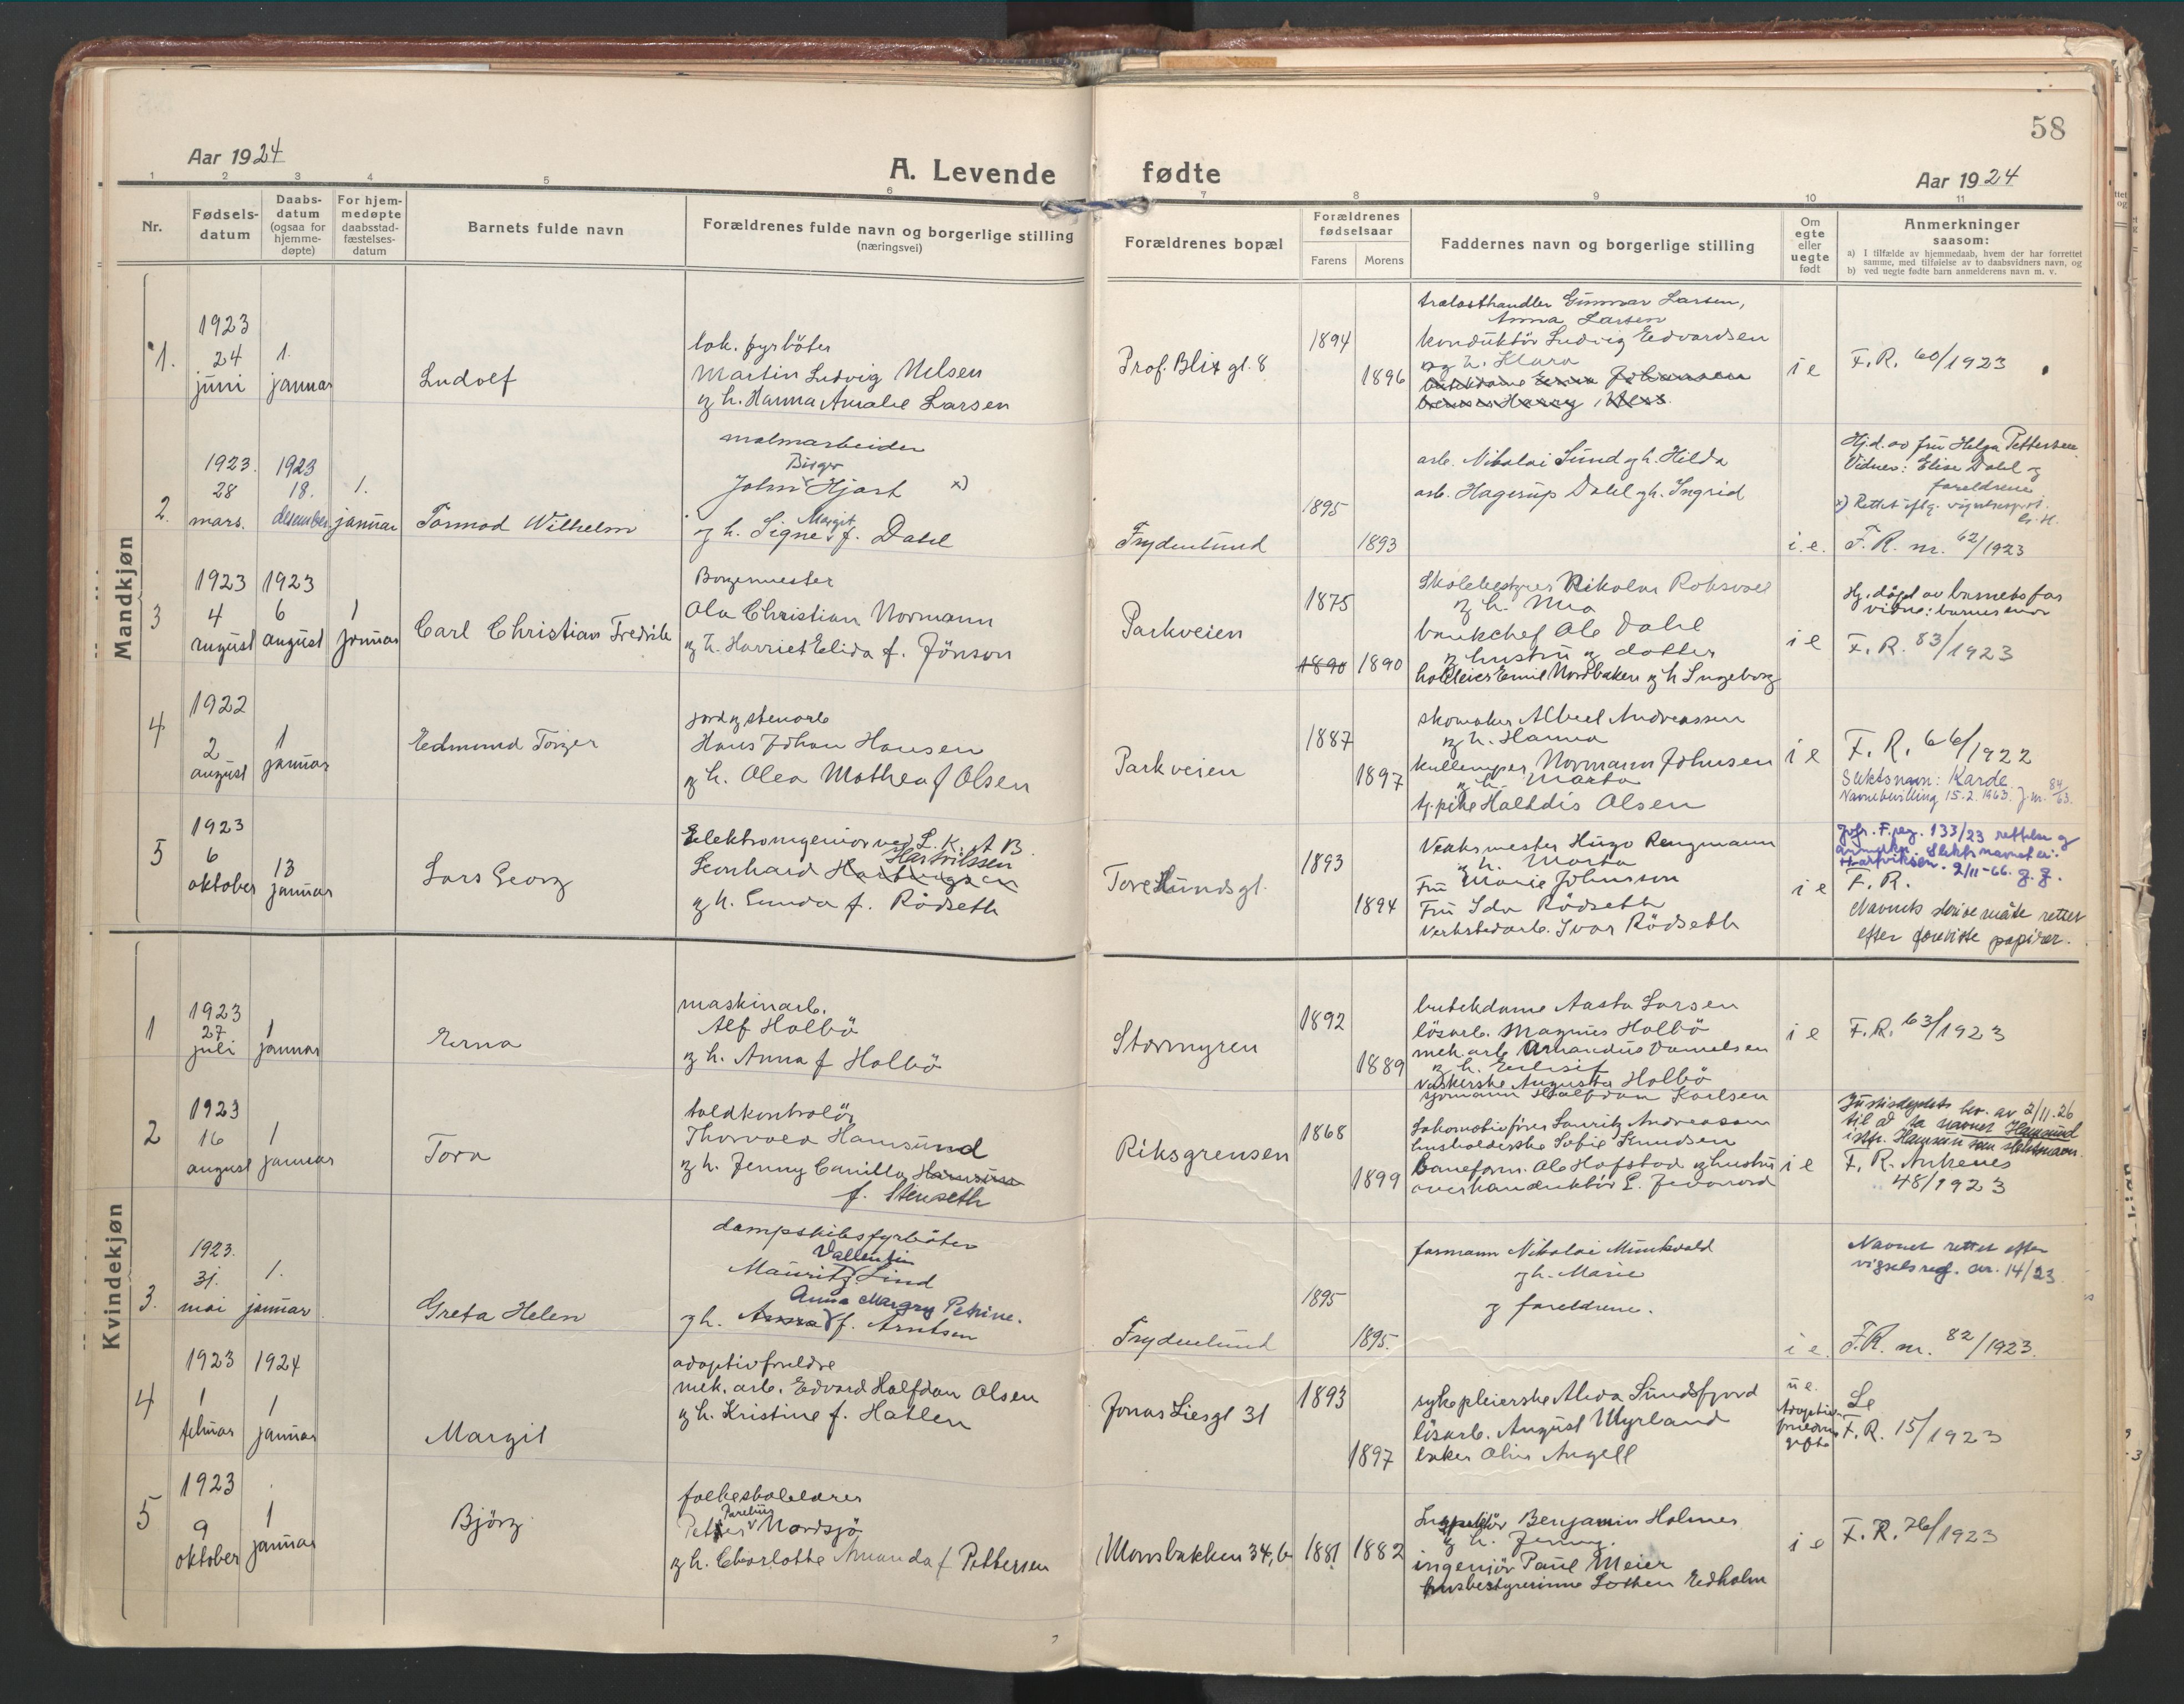 58
Aar 1924
A. Levende fødte
Aar 1924
1 2 3 4 5 6 7 8 9 10 11
Nr.
Fødsels-
datum
Daabs-
datum
(ogsaa for
hjemme-
døpte)
For hjem-
medøpte
daabsstad-
fæstelses-
datum
Barnets fulde navn
Forældrenes fulde navn og borgerlige stilling
(næringsvei)
Forældrenes bopæl
Forældrenes
fødselsaar
Farens Morens
Faddernes navn og borgerlige stilling
Om
egte
eller
uegte
født
Anmerkninger
saasom:
a) I tilfælde av hjemmedaab, hvem der har forrettet
samme, med tilføielse av to daabsvidners navn, og
b) ved uegte fødte barn anmelderens navn m. v.
Mandkjøn
1.
1923
24
juni
1.
januar
Ludolf
lok. fyrbøter
Martin Ludvig Nelsen
og h. Hanna Amalie Larsen
Prof. Blix gt. 8
1894
1896
trælasthandler Gunnar Larsen,
Anna Larsen
konduktör Ludvig Edvardsen
og h. Klara
i e
F. R. 60/1923
2.
1923.
28
mars.
1923
18.
desember
1.
januar
Tormod Wilhelm
malmarbeider
Birger
John Hjort x)
Margit
og h. Signe f. Dahl
Frydenlund
1895
1893
arb. Nikolai Sund og h. Hilda
arb. Hagerup Dahl og h. Ingrid
i. e.
Hj.d. av fru Helga Pettersen.
Vidner: Elise Dahl og
foreldrene
x) Rettet iflg.
F. R. nr. 62/1923
3
1923
4
august
1923
6
august
1
januar
Carl Christian Fredrik
Borgermester
Ola Christian Normann
og h. Harriet Elida f. Jönson
Parkveien
1875
1890 1890
Skolebestyrer Nikolai Roksvoll
og h. Mia
bankchef Ole Dahl
og hustru og datter
hoteleier Emil Nordbakken og h Ingeborg
i e
Hj. döpt av barnets far
vidne: barnets mor
F. R. 83/1923
4
1922
2
august
1
januar
Edmund Torger
jord og stenarb
Hans Johan Hansen
og h. Olea Mathea f Olsen
Parkveien
1887
1897
skomaker Albert Andreassen
og h. Hanna
kullemper Normann Johnsen
og h. Marta
tj. pike Halldis Olsen
i e
F. R. 66/1922
Slektsnavn: Karde
Navnebevilling 15.2.1963. J.nr. 84/63.
5
1923
6
oktober
13
januar
Lars Georg
Elektroingeniör ved L. K. A B
Hartvikssen
Leonhard
og h. Gunda f. Rödseth
Tore Hundsgt.
1893
1894
Verksmester Hugo Rengmann
og h. Marta
Fru Marie Johnson
Fru Ida Rödseth
Verkstedarb. Ivar Rödseth
i e
Jvfr. F.reg. 133/23 rettelse og
anmerkn. Slektsnavnet er:
Hartviksen. 2/11-66.
F. R.
Navnets skrivemåte rettet
efter foreviste papirer.
Kvindekjøn
1
1923
27
juli
1
januar
Erna
maskinarb.
Alf Holbö
og h. Anna f Holbö
Stormyren
1892
1889
butekdame Aasta Larsen
lösarb. Magnus Holbö
mek arb Amandus Danielsen
og h. Erlisif
vaskerske Augusta Holbö
sjömann Halfdan Karlsen
i e
F. R. 63/1923
2
1923
16
august
1
januar
Tora
toldkontrolör
Thorvald Hamsund
og h. Jenny Camilla Hamsun
f. Stenseth
Riksgrensen
1868
1899
Lokomotivförer Lauritz Andreassen
husholderske Sofie Knudsen
Baneform. Ole Hofstad og hustru
overkonduktör L.
i e
Justisdeptets bev. av 2/11.26
til å ta navnet Hamsund
istf. Hamsun som slektsnavn.
F. R. Ankenes
48/1923
3.
1923.
31.
mai
1.
januar
Greta Helen
dampskibsfyrböter
Vallentin
Mauritz Lind
Anna Margry Petrine.
og h. Anna f. Arntsen
Frydenlund
1895
1895.
formann Nikolai Munkvold
og h. Marie
og foreldrene.
i e.
Navnet rettet efter
vigselsreg. nr. 14/23
F.R. nr. 82/1923.
4
1923
1
februar
1924
1
januar
Margit
adoptivforeldre
mek. arb. Edvard Halfdan Olsen
og h. Kristine f. Hatlen
Jonas Liesgt 31
1893
1897
sykepleierske Alida Sundsfjord
lösarb. August Myrland
baker Olur Angell
u e.
Adoptiv-
foreldrene
gifte
Le
F. R. 15/1923
5
1923
9
oktober
1
januar
Björg
folkeskolelærer
Parelius
Petter Nordsjö
og h. Charlotte Amanda f Pettersen
Monsbakken 34, b
1881 1882
Inspektör Benjamin Holmes
og h. Jenny.
ingeniör Paul Meier
husbestyrerinne Lotten Edholm
i e
F. R. 76/1923